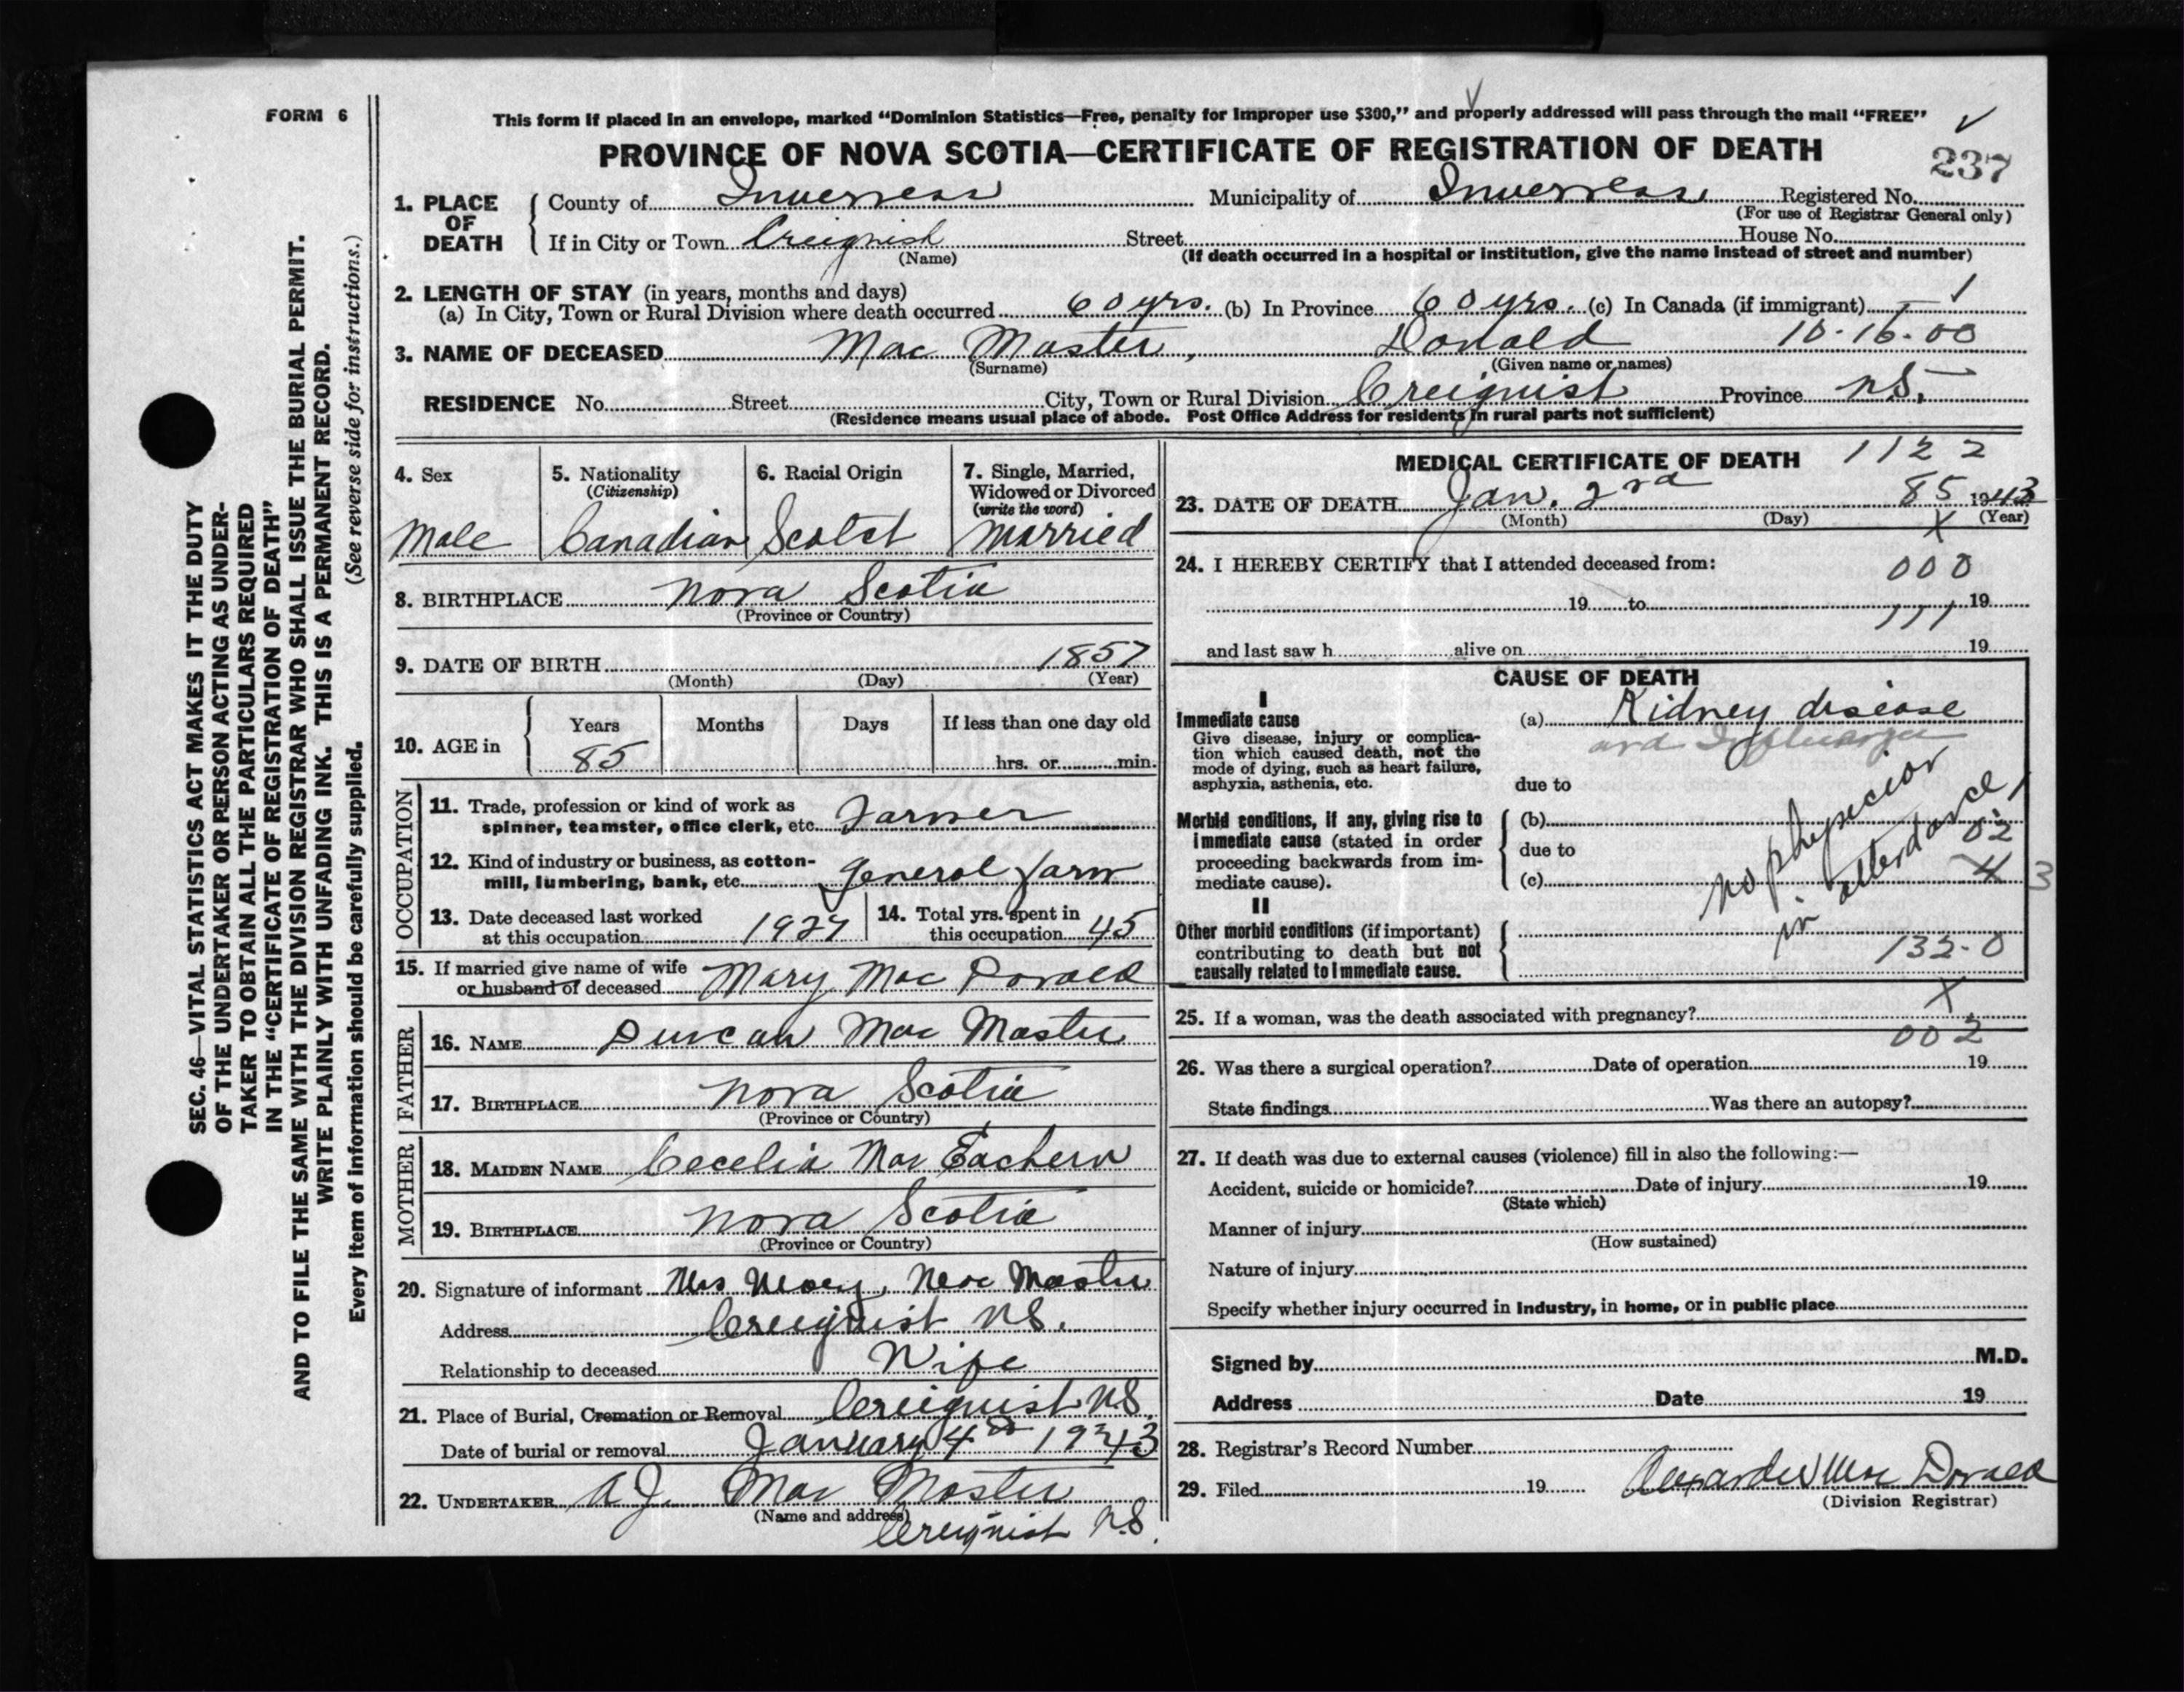 FORM 6
This form if placed in an envelope, marked "Dominion Statistics—Free, penalty for improper use $300," and properly addressed will pass through the mail "FREE"
PROVINCE OF NOVA SCOTIA—CERTIFICATE OF REGISTRATION OF DEATH
237
1. PLACE OF DEATH County of Inverness Municipality of Inverness Registered No.
(For use of Registrar General only)
If in City or Town Creignish Street House No.
(Name) (If death occurred in a hospital or institution, give the name instead of street and number)
2. LENGTH OF STAY (in years, months and days)
(a) In City, Town or Rural Division where death occurred 60 yrs. (b) In Province 60 yrs. (c) In Canada (if immigrant) 1
3. NAME OF DECEASED Mac Master, Donald 10-16-00
(Surname) (Given name or names)
RESIDENCE No. Street City, Town or Rural Division Creignist Province N.S.
(Residence means usual place of abode. Post Office Address for residents in rural parts not sufficient)
4. Sex
Male
5. Nationality
(Citizenship)
Canadian
6. Racial Origin
Scotct
7. Single, Married,
Widowed or Divorced
(write the word)
Married
8. BIRTHPLACE Nova Scotia
(Province or Country)
9. DATE OF BIRTH 1857
(Month) (Day) (Year)
10. AGE in Years Months Days If less than one day old
85 hrs. or min.
OCCUPATION
11. Trade, profession or kind of work as
spinner, teamster, office clerk, etc. Farmer
12. Kind of industry or business, as cotton-
mill, lumbering, bank, etc. General farm
13. Date deceased last worked
at this occupation 1927
14. Total yrs. spent in
this occupation 45
15. If married give name of wife
or husband of deceased Mary Mac Donald
FATHER
16. NAME Duncan Mac Master
17. BIRTHPLACE Nova Scotia
(Province or Country)
MOTHER
18. MAIDEN NAME Cecelia Mac Eachern
19. BIRTHPLACE Nova Scotia
(Province or Country)
20. Signature of informant Mrs Mary Mac Master
Address Creignist N.S.
Relationship to deceased Wife
21. Place of Burial, Cremation or Removal Creignist N.S.
Date of burial or removal January 4th 1943
22. UNDERTAKER A J. Mac Master
(Name and address)
Creignist N.S.
MEDICAL CERTIFICATE OF DEATH 1122
23. DATE OF DEATH Jan. 2nd 85 1943
(Month) (Day) X (Year)
24. I HEREBY CERTIFY that I attended deceased from: 000
19 to 19
111
and last saw h alive on 19
CAUSE OF DEATH
I
Immediate cause
Give disease, injury or complica-
tion which caused death, not the
mode of dying, such as heart failure,
asphyxia, asthenia, etc.
(a) Kidney disease
and Influenza
due to
Morbid conditions, if any, giving rise to
immediate cause (stated in order
proceeding backwards from im-
mediate cause).
(b)
due to
(c)
no physician
in attendance
02
4 3
II
Other morbid conditions (if important)
contributing to death but not
causally related to immediate cause.
132-0
X
25. If a woman, was the death associated with pregnancy?
002
26. Was there a surgical operation? Date of operation 19
State findings Was there an autopsy?
27. If death was due to external causes (violence) fill in also the following:—
Accident, suicide or homicide? Date of injury 19
(State which)
Manner of injury
(How sustained)
Nature of injury
Specify whether injury occurred in industry, in home, or in public place
Signed by M.D.
Address Date 19
28. Registrar's Record Number
29. Filed 19 Alexander Mac Donald
(Division Registrar)
SEC. 46—VITAL STATISTICS ACT MAKES IT THE DUTY
OF THE UNDERTAKER OR PERSON ACTING AS UNDER-
TAKER TO OBTAIN ALL THE PARTICULARS REQUIRED
IN THE "CERTIFICATE OF REGISTRATION OF DEATH"
AND TO FILE THE SAME WITH THE DIVISION REGISTRAR WHO SHALL ISSUE THE BURIAL PERMIT.
WRITE PLAINLY WITH UNFADING INK. THIS IS A PERMANENT RECORD.
Every item of information should be carefully supplied. (See reverse side for instructions.)